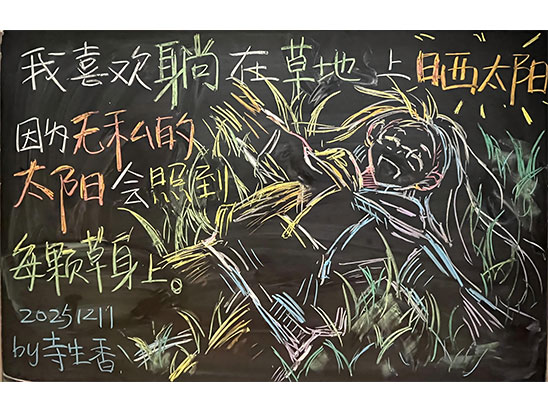 我喜欢躺在草地上晒太阳
因为无私的
太阳会照到
每颗草身上。
20251211
by寺生香